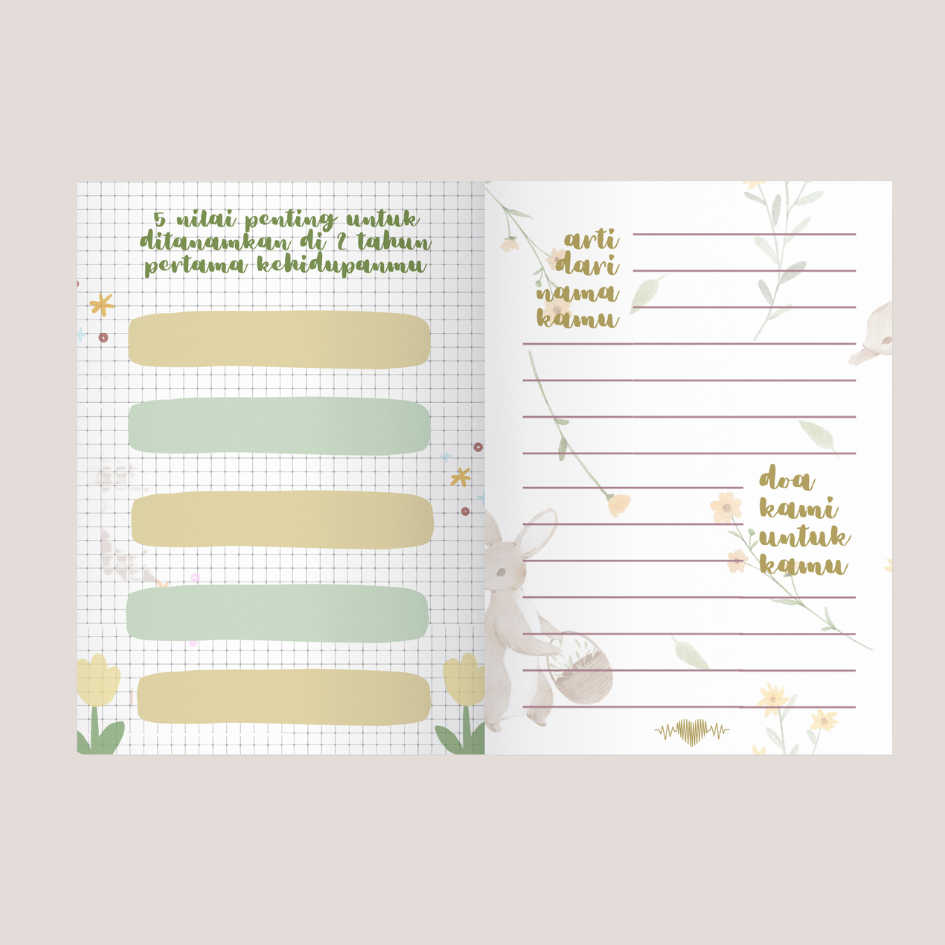 5 nilai penting untuk
ditanamkan di 2 tahun
pertama kehidupanmu
arti
dari
nama
kamu
doa
kami
untuk
kamu